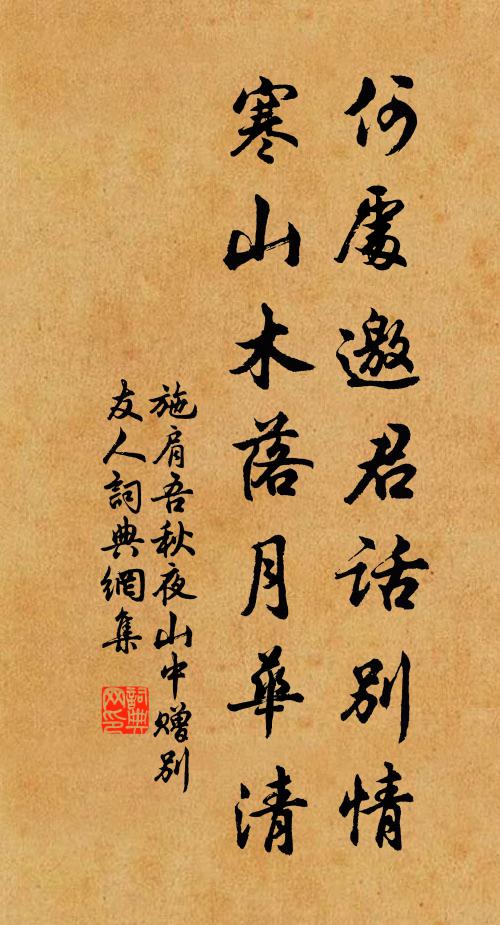 何處邀君话别情
寒山木落月華清
施肩吾秋夜山中赠别
友人詞典網集
詞典
网印